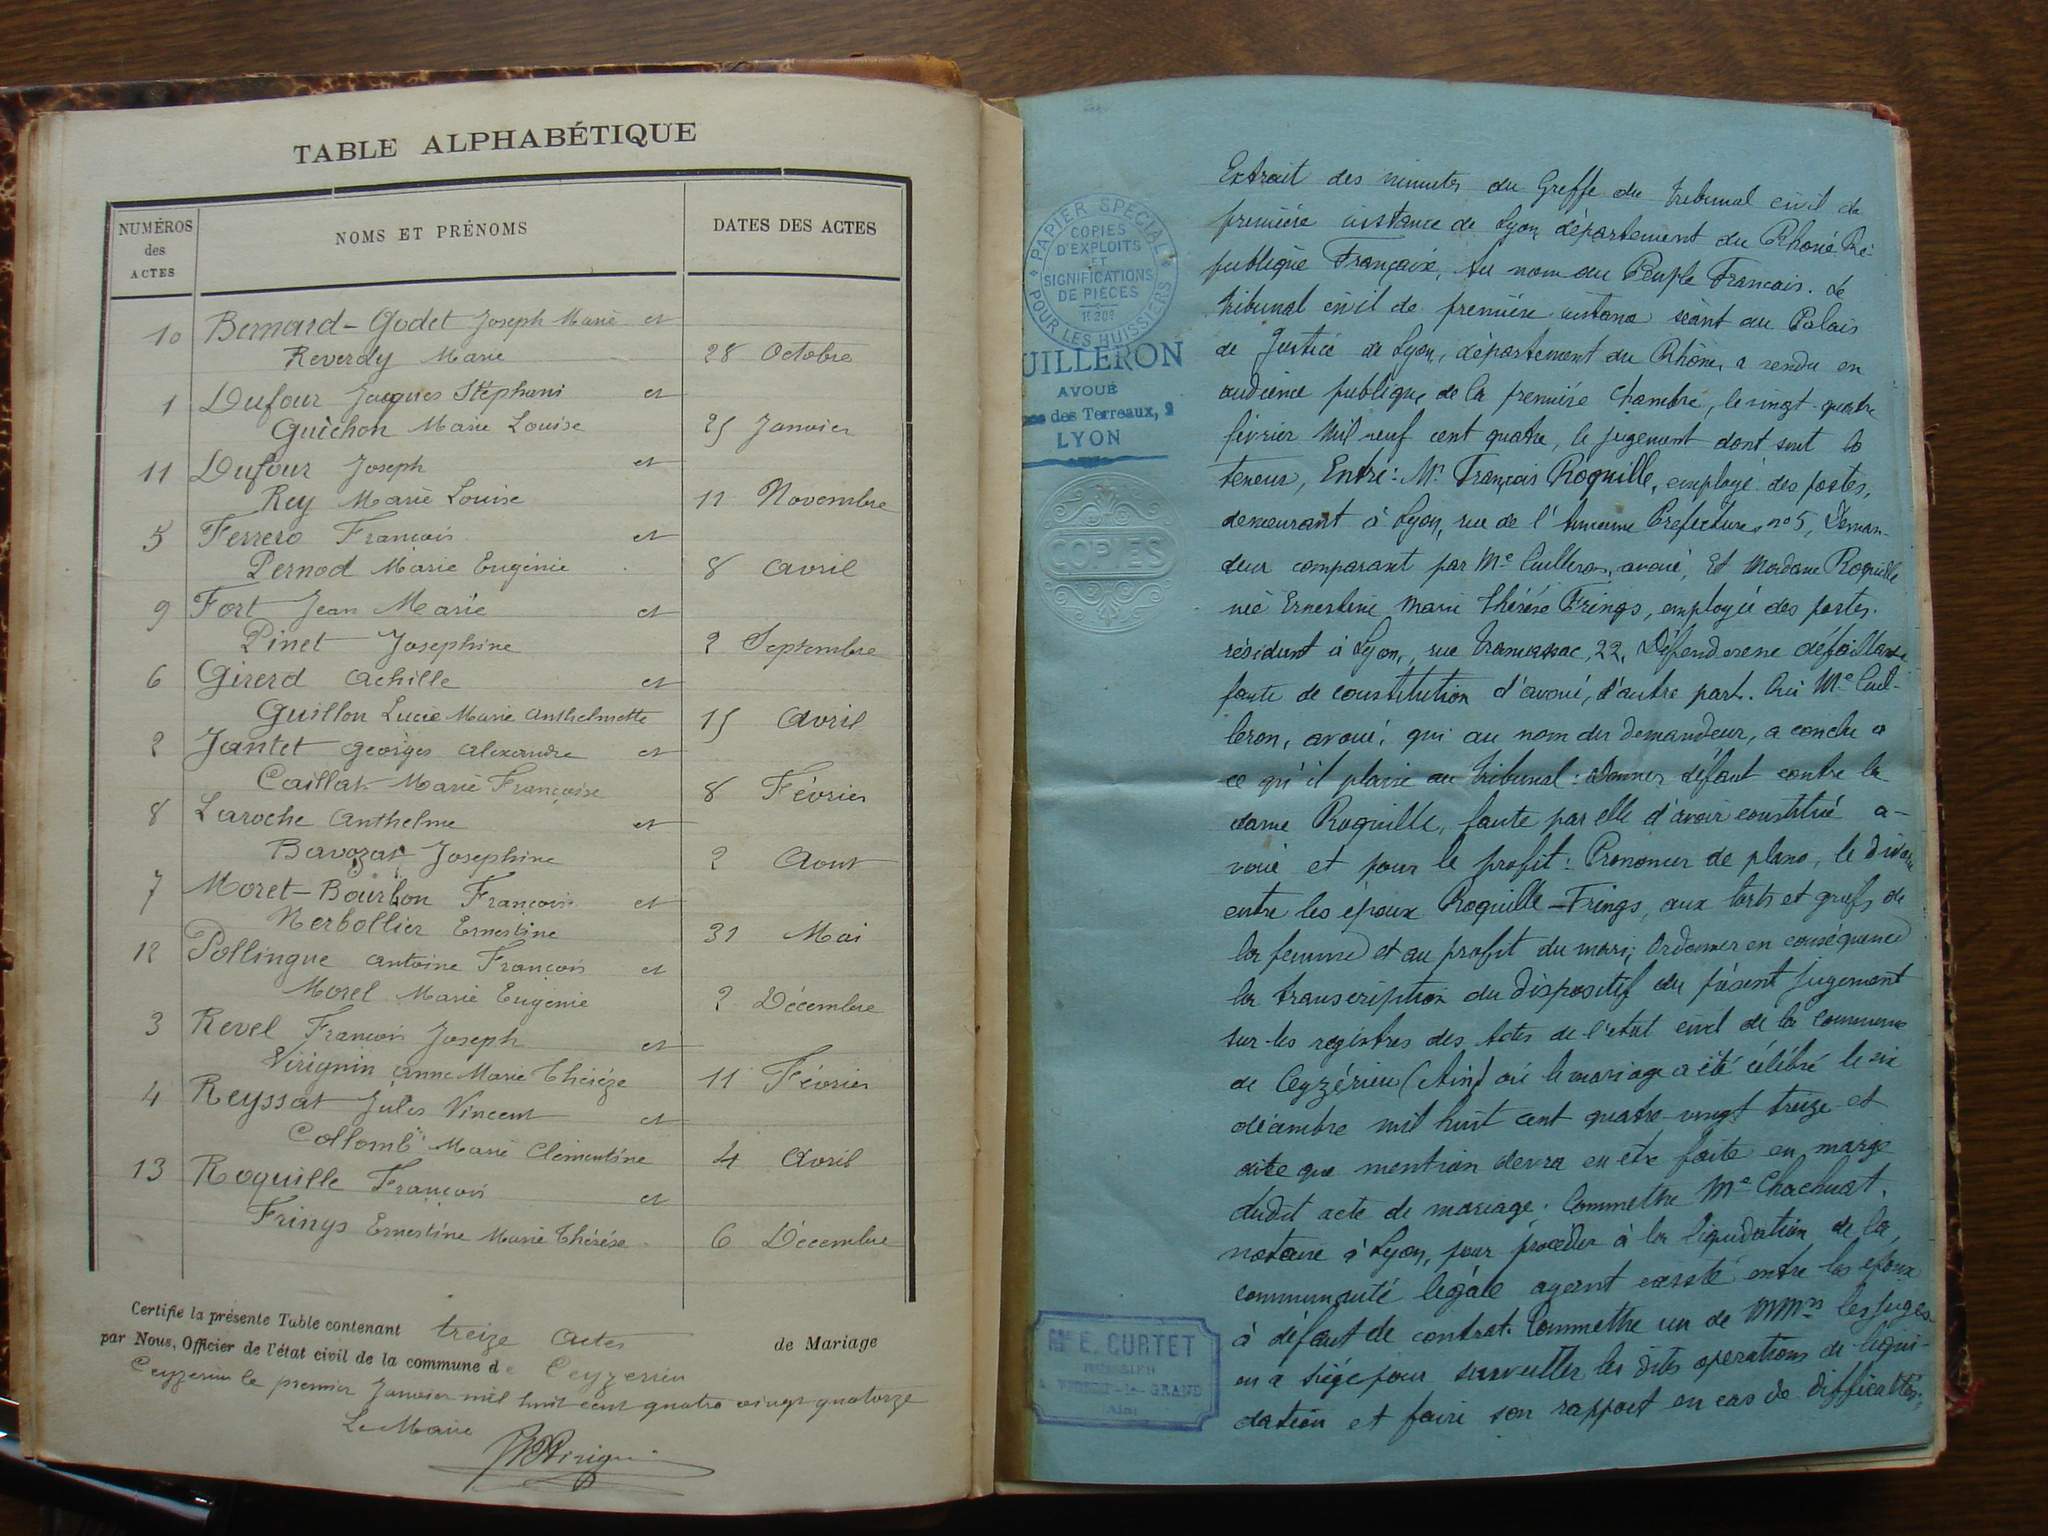 TABLE ALPHABÉTIQUE
NUMÉROS des ACTES
NOMS ET PRÉNOMS
DATES DES ACTES
10 Bernard-Godet Joseph Marie et
Reverdy Marie 28 Octobre
1 Dufour Jacques Stéphani et
Guichon Marie Louise 25 Janvier
11 Dufour Joseph et
Rey Marie Louise 11 Novembre
5 Ferrero François et
Pernod Marie Eugénie 8 avril
9 Fort Jean Marie et
Pinet Josephine 2 Septembre
6 Girerd achille et
Guillon Lucie Marie anthelmette 15 avril
2 Jantet georges alexandre et
Caillat Marie Françoise 8 Février
8 Laroche anthelme et
Bavozat Josephine 2 Aout
7 Moret-Bourbon François et
Nerbollier Ernestine 31 Mai
12 Pollingue antoine François et
Morel Marie Eugénie 2 Décembre
3 Revel François Joseph et
Virignin anne Marie Théréze 11 Février
4 Reyssat Jules Vincent et
Collomb Marie Clémentine 4 avril
13 Roquille François et
Frings Ernestine Marie Thérése 6 Décembre
Certifie la présente Table contenant treize actes de Mariage
par Nous, Officier de l'état civil de la commune de Ceyzerieu
Ceyzerieu le premier Janvier mil huit cent quatre vingt quatorze
Le Maire
PAPIER SPÉCIAL POUR LES HUISSIERS
COPIES
D'EXPLOITS
ET
SIGNIFICATIONS
DE PIÈCES
UILLERON
AVOUÉ
des Terreaux, 9
LYON
COPIES
Extrait des minutes du Greffe du tribunal civil de
première instance de Lyon département du Rhone Ré-
publique Française, Au nom du Peuple Francais. Le
tribunal civil de première instance séant au Palais
de Justice de Lyon, département du Rhône, a rendu en
audience publique, de la première Chambre, le vingt-quatre
février Mil neuf cent quatre, le jugement dont suit la
teneur, Entre: Mr François Roquille, employé des postes,
demeurant à Lyon, rue de l'Ancienne Préfecture, no 5, Deman-
deur comparant par Me Cuilleron, avoué, Et Madame Roquille
née Ernestine Marie thérése Frings, employée des postes.
résidant à Lyon, rue tramassac, 22, Défenderesse défaillante
faute de constitution d'avoué, d'autre part. Oui Me Cuil-
leron, avoué, qui au nom du demandeur, a conclu a
ce qu'il plaise au tribunal: Donner défaut contre la
dame Roquille, faute par elle d'avoir constitué a-
voué et pour le profit: Prononcer de plano, le divorce
entre les époux Roquille-Frings, aux torts et griefs de
la femme et au profit du mari; Ordonner en conséquence
la transcription du dispositif du présent jugement
sur les registres des Actes de l'etat civil de la commune
de Ceyzérieu (Ain) où le mariage a été célébré le six
décembre mil huit cent quatre vingt treize et
dite que mention devra en etre faite en marge
dudit acte de mariage. Commettre Me Chachuat,
notaire à Lyon, pour procéder à la liquidation de la
communauté légale ayant existé entre les époux
à défaut de contrat. Commettre un de MMrs les Juges
en a siége pour surveiller les dites opérations de liqui-
dation et faire son rapport en cas de difficultés;
E. CURTET
HUISSIER
LE-GRAND
Ain